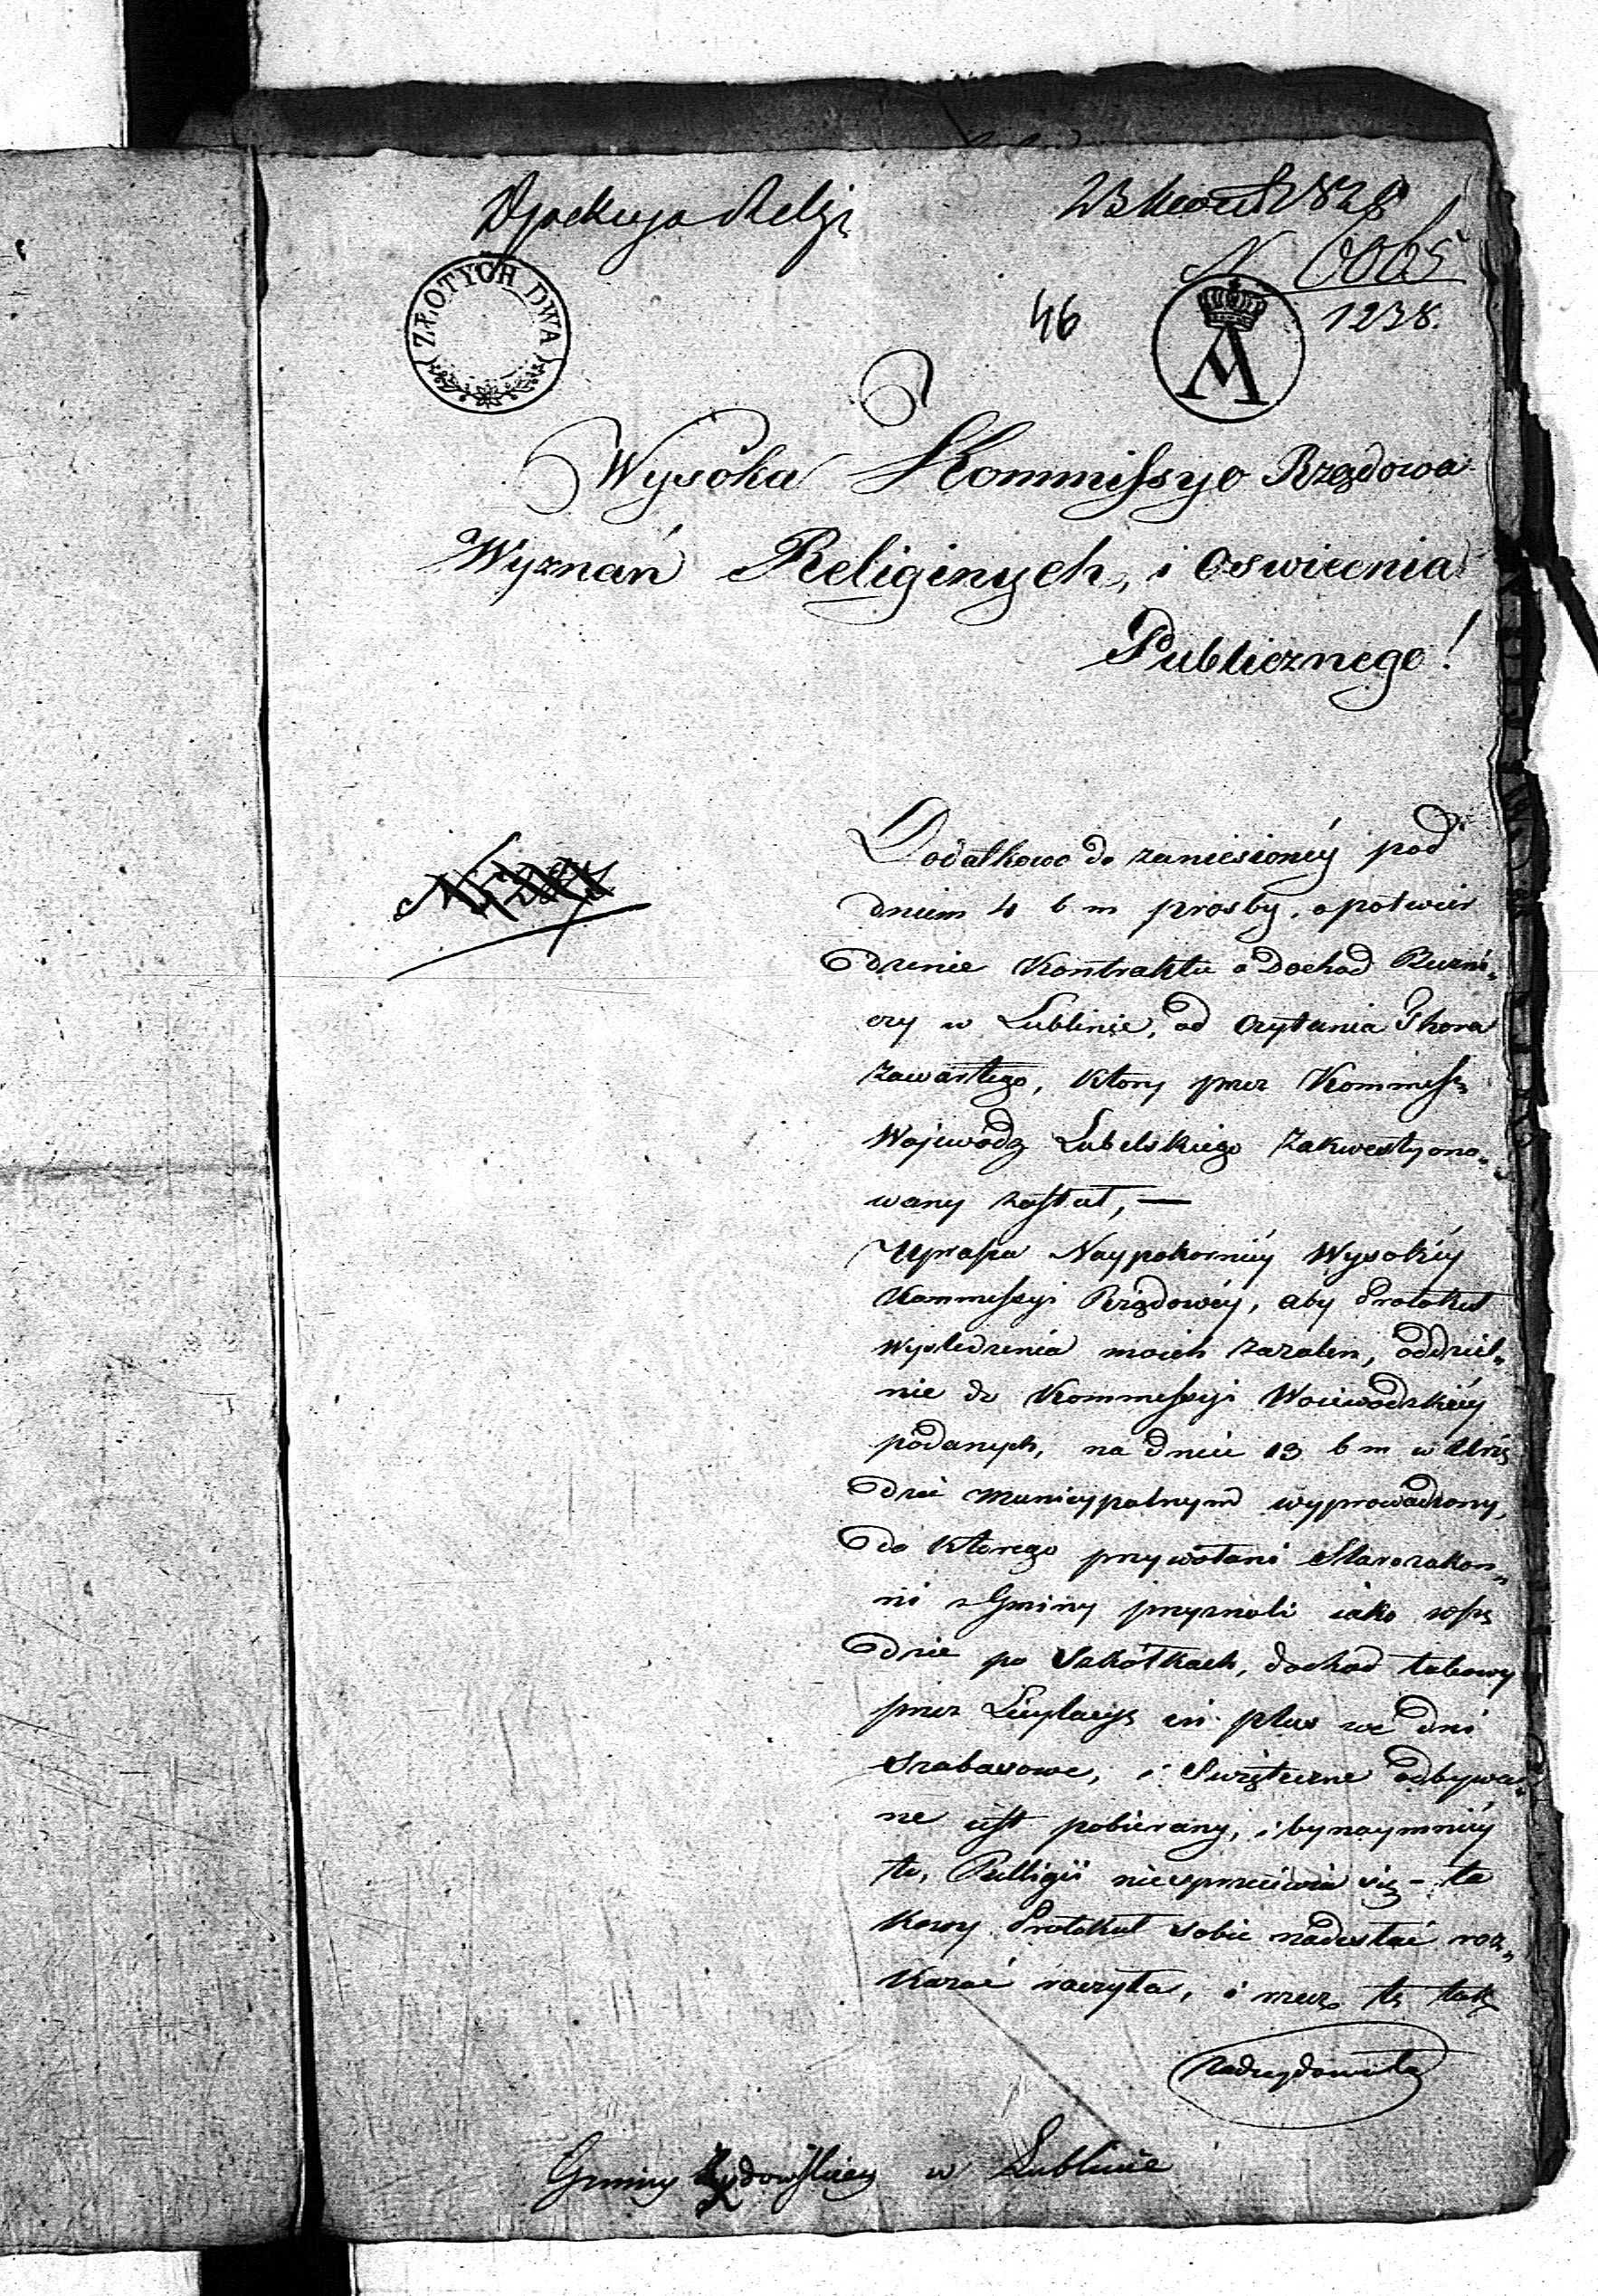 23 1828
N 6065
1238.
46
ZŁOTYCH DWA
A
Wysoka Kommissyo Rządowa
Wyznań Religinych, i Oswiecenia
Publicznego!
Dodatkowo do zaniesionéy pod
dniem 4 b m prosby, o potwier
dzenie Kontraktu o Dochod Buzni„
czy w Lublinie, od Czytania Thora
zawartego, Ktory przez Kommissę
Wojewódz Lubelskiego Zakwestyono„
wany został, —
Uprasza Naypokorniéy Wysokiéy
Kommissyi Rządowéy, aby Protokuł
wysledzenia moich zazalen, oddziel„
nie do Kommissyi Woiewodzkiéy
podanych, na dniu 13 b m w Urzę
dzie Municypalnym wyprowadzony,
do ktorego przywołani Starozakon„
ni z Gminy przyznali iako wszę
dzie po Szkółkach, dochod takowy
przez Licytacyę in plus we dni
Szabasowe, i Swięteczne odbywa„
ne iest pobierany, i bynaymniéy
to, Relligii niesprzeciwia się – ta
kowy Protokuł sobie nadesłać roz„
kazać raczyła, i rzecz tę tak
zadecydowała
Gminy Żydowskiey w Lublinie